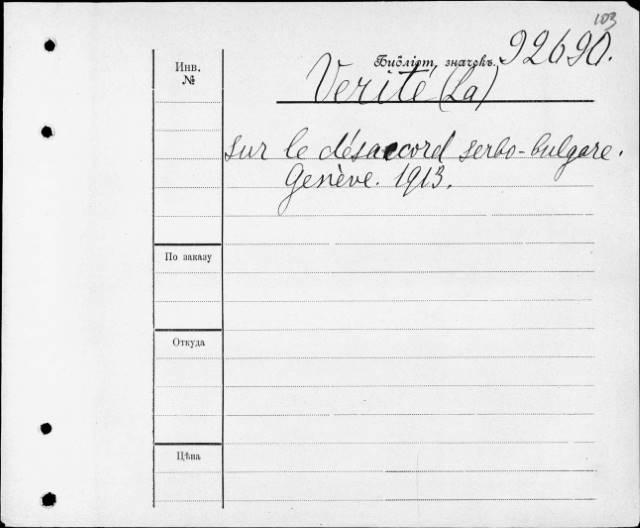 103
Инв.
№
Библіот. значекъ 92690.
Verité (La)
sur le désaccord serbo-bulgare.
Genève. 1913.
По заказу
Откуда
Цѣна